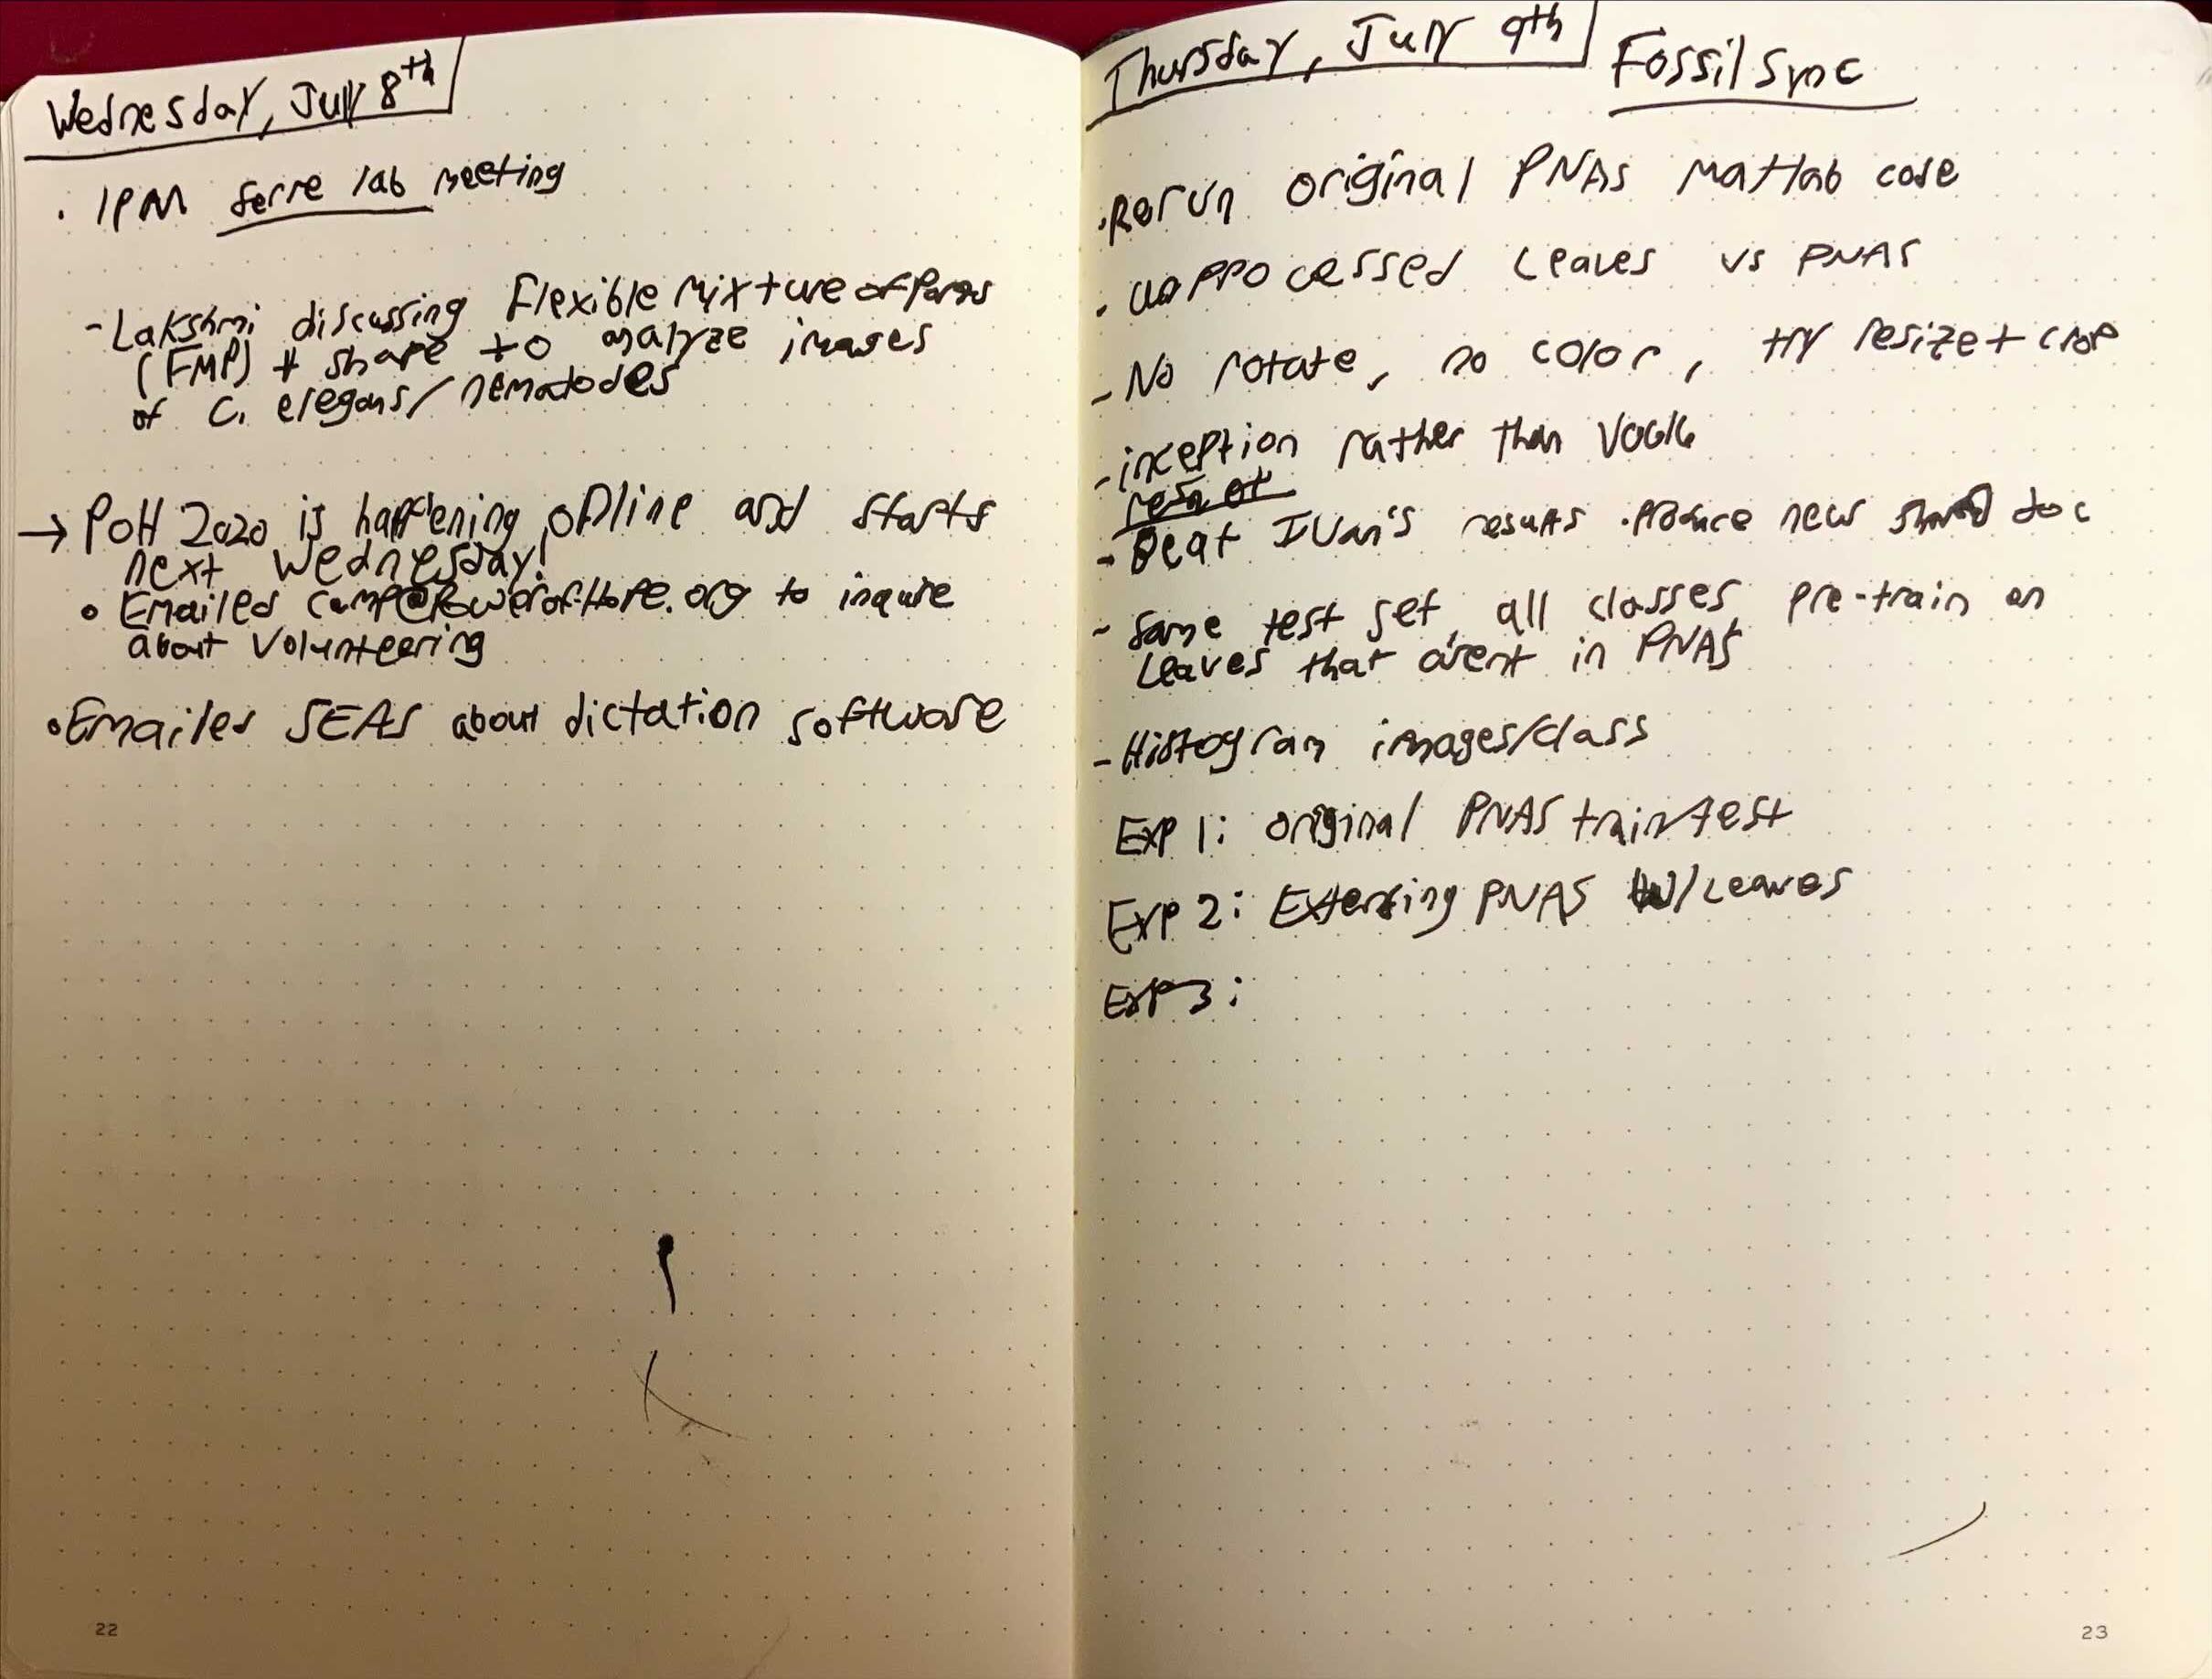 Wednesday, July 8th
· 1PM Serre lab meeting
- Lakshmi discussing Flexible Mixture of Parts
(FMP) + shape to analyze images
of C. elegans/nematodes
→ PoH 2020 is happening online and starts
next Wednesday!
• Emailed camp@PowerofHope.org to inquire
about Volunteering
• Emailed SEAS about dictation software
22
Thursday, July 9th
Fossil Sync
· Rerun original PNAS Matlab code
· unprocessed Leaves vs PNAS
- No rotate, no color, try resize + crop
- inception rather than VGG16
resnet
- Beat Ivan's results · Produce new shared doc
- Same test set, all classes, pre-train on
Leaves that arent in PNAS
- Histogram images/class
Exp 1: original PNAS train/test
Exp 2: Extending PNAS w/Leaves
Exp 3:
23